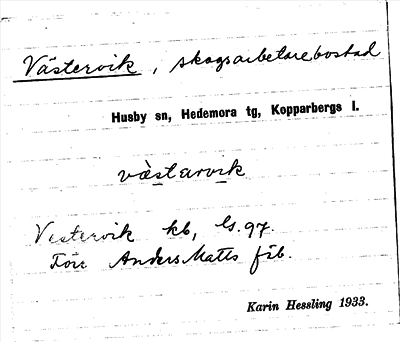 Västervik, skogsarbetarebostad
Husby sn, Hedemora tg, Kopparbergs l.
vàstarvik
Vestervik kb, Gs. 97.
Förr Anders Matts fäb.
Karin Hessling 1933.